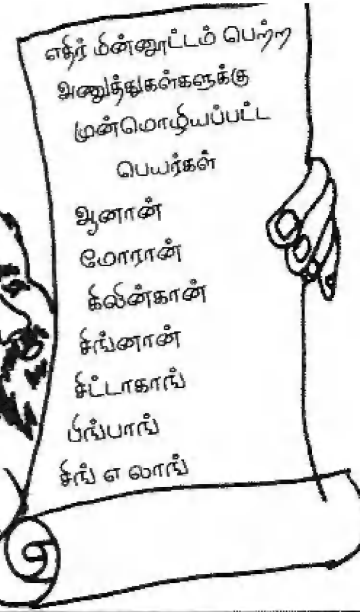 எதிர் மின்னூட்டம் பெற்ற
அணுத்துகள்களுக்கு
முன்மொழியப்பட்ட
பெயர்கள்
ஆனான்
மோரான்
கிலின்கான்
சிங்னான்
சிட்டாகாங்
பிங்பாங்
சிங் எ லாங்